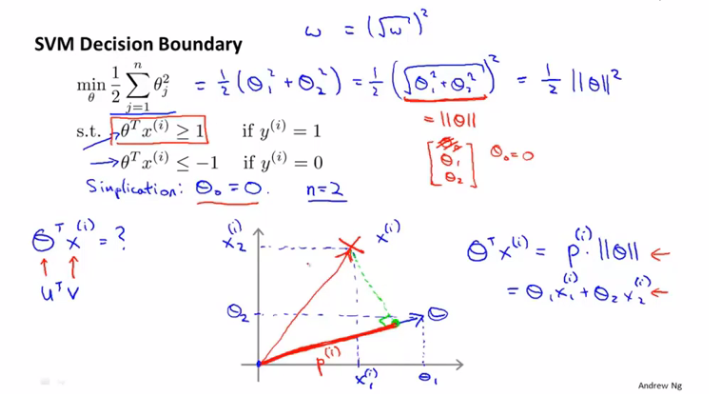 ω = (√ω)²
SVM Decision Boundary
min_θ 1/2 Σ_{j=1}^{n} θ_j² = 1/2 (θ₁² + θ₂²) = 1/2 (√(θ₁² + θ₂²))² = 1/2 ||θ||²
= ||θ||
s.t. θᵀx⁽ⁱ⁾ ≥ 1 if y⁽ⁱ⁾ = 1
θᵀx⁽ⁱ⁾ ≤ −1 if y⁽ⁱ⁾ = 0
[θ₁
θ₂] θ₀=0
Simplication: θ₀ = 0. n=2
θᵀx⁽ⁱ⁾ = ?
uᵀv
x₂⁽ⁱ⁾
x⁽ⁱ⁾
θ₂
θ
p⁽ⁱ⁾
x₁⁽ⁱ⁾
θ₁
θᵀx⁽ⁱ⁾ = p⁽ⁱ⁾ · ||θ|| ←
= θ₁x₁⁽ⁱ⁾ + θ₂x₂⁽ⁱ⁾ ←
Andrew Ng